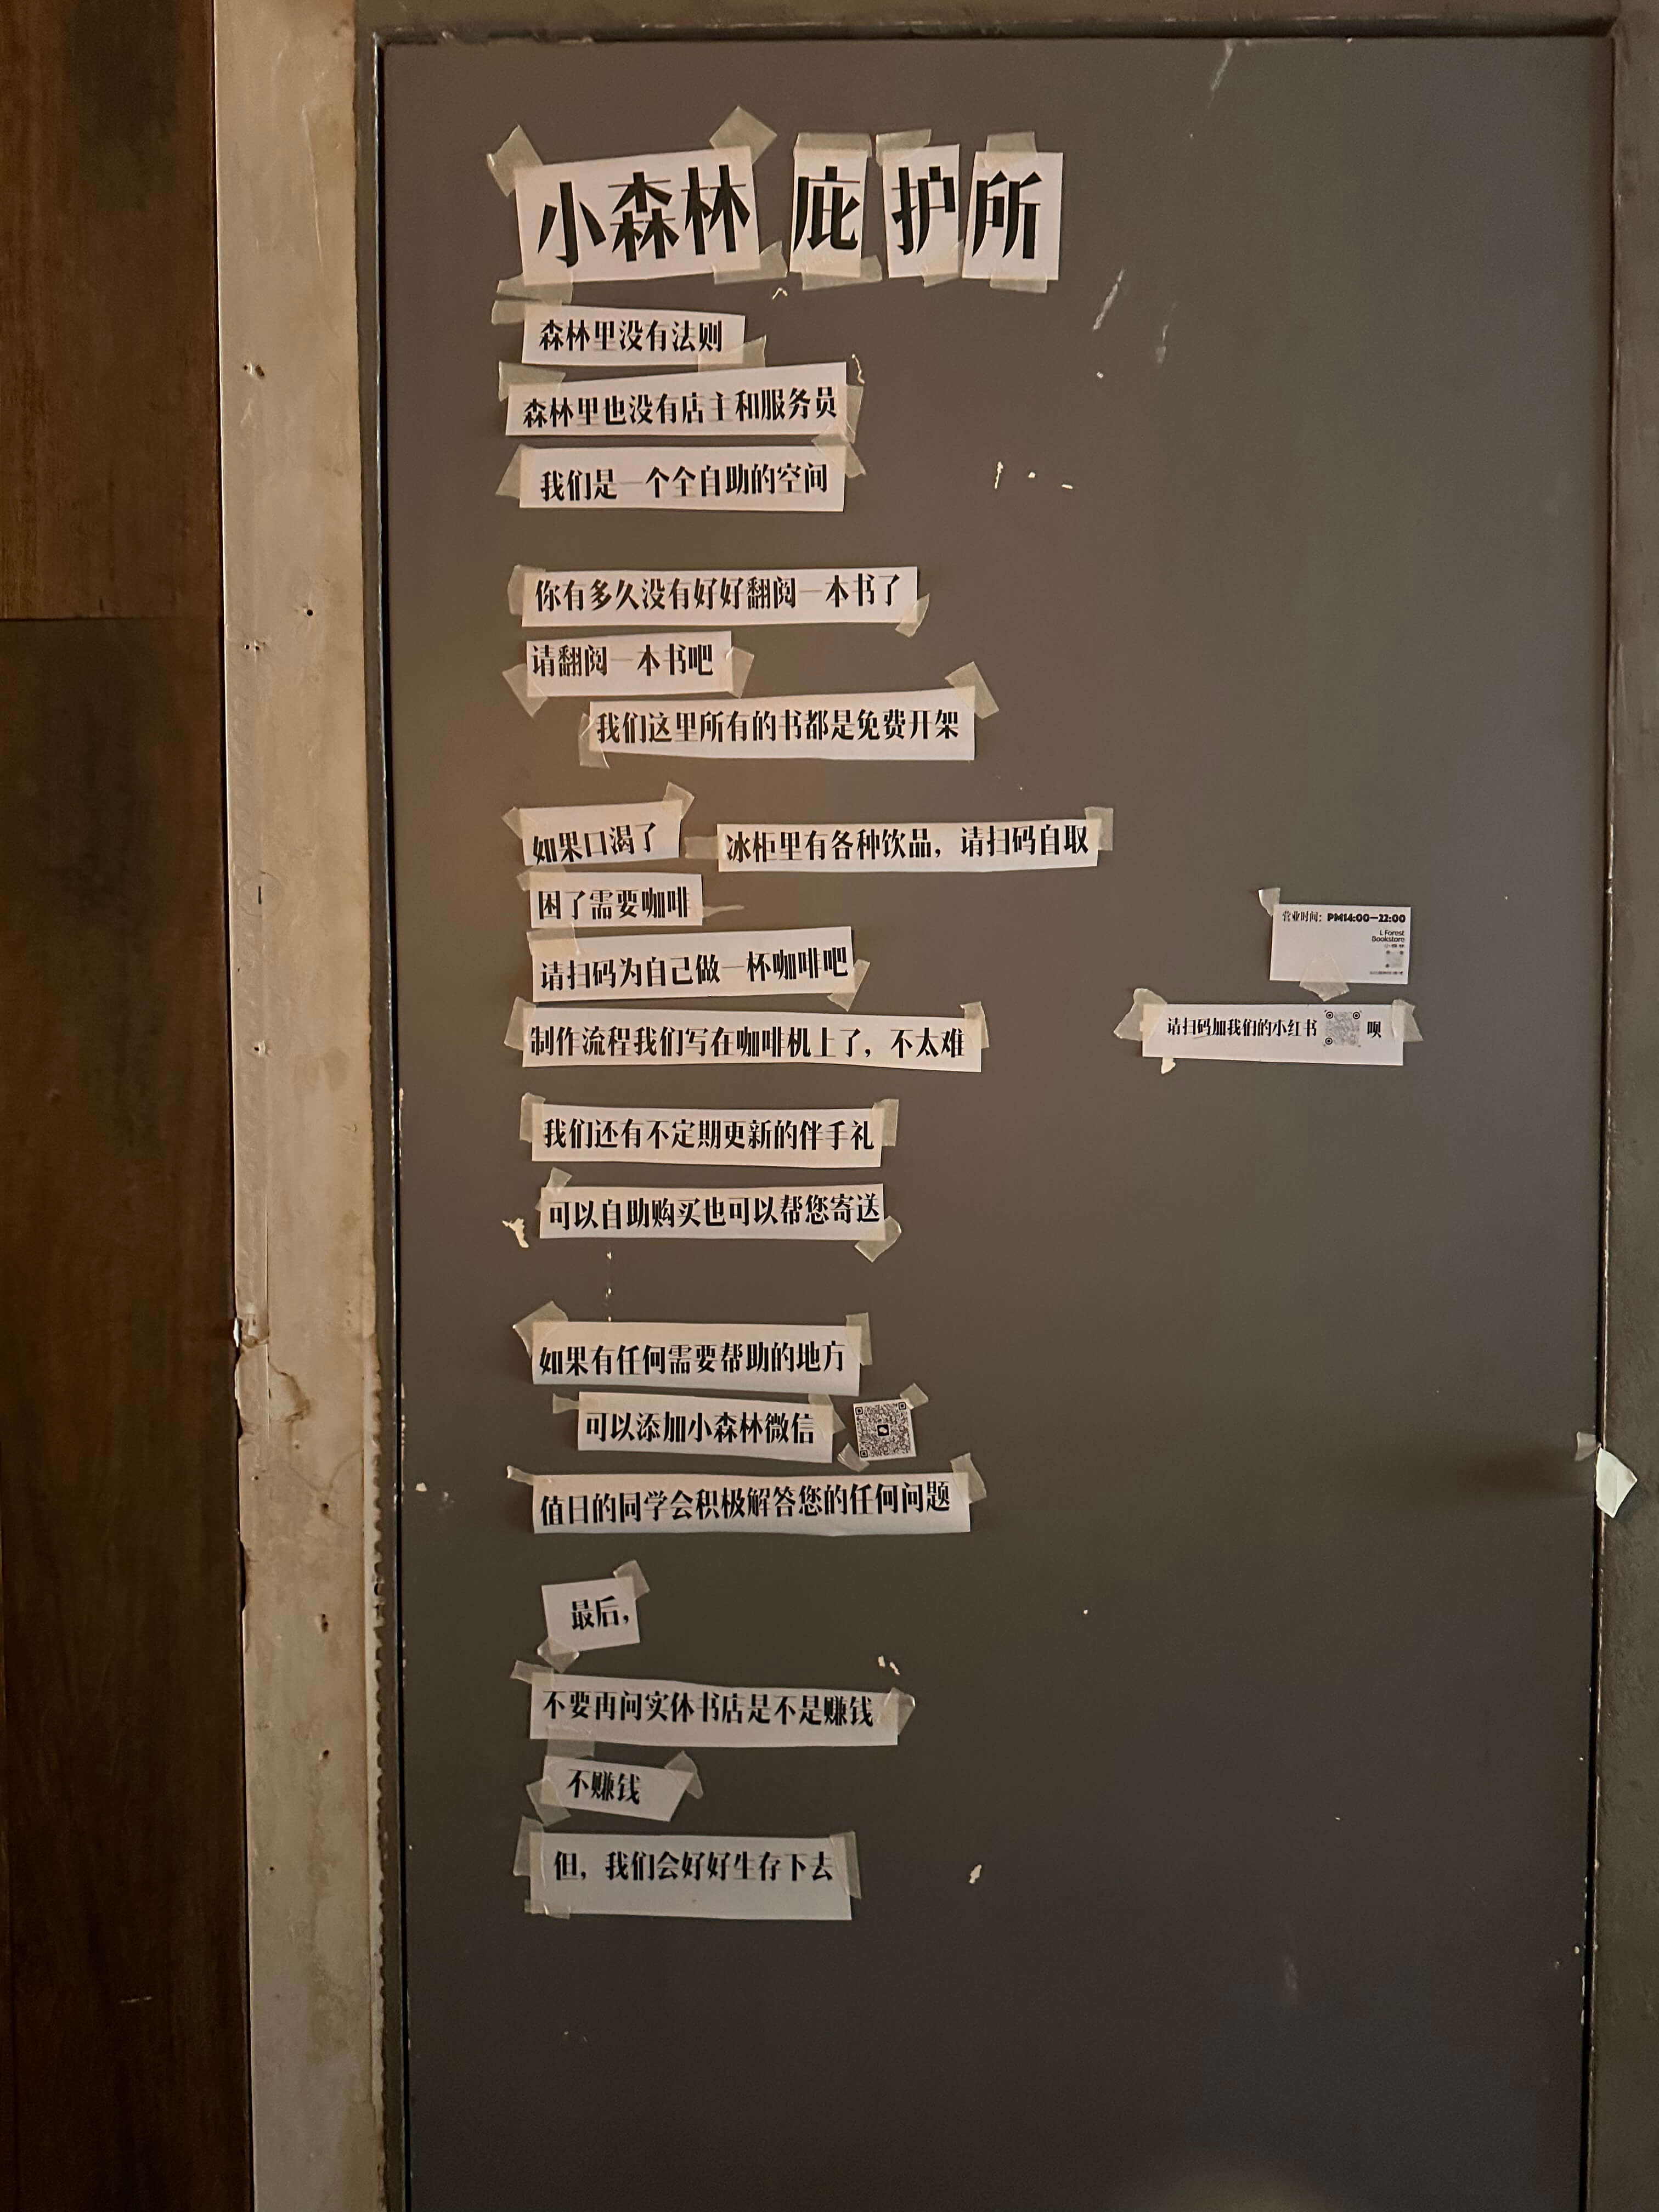 小森林 庇护所
森林里没有法则
森林里也没有店主和服务员
我们是一个全自助的空间
你有多久没有好好翻阅一本书了
请翻阅一本书吧
我们这里所有的书都是免费开架
如果口渴了 冰柜里有各种饮品，请扫码自取
困了需要咖啡
请扫码为自己做一杯咖啡吧
制作流程我们写在咖啡机上了，不太难
我们还有不定期更新的伴手礼
可以自助购买也可以帮您寄送
如果有任何需要帮助的地方
可以添加小森林微信
值日的同学会积极解答您的任何问题
最后，
不要再问实体书店是不是赚钱
不赚钱
但，我们会好好生存下去
营业时间：PM14:00—22:00
L Forest
Bookstore
小森林
请扫码加我们的小红书 呗